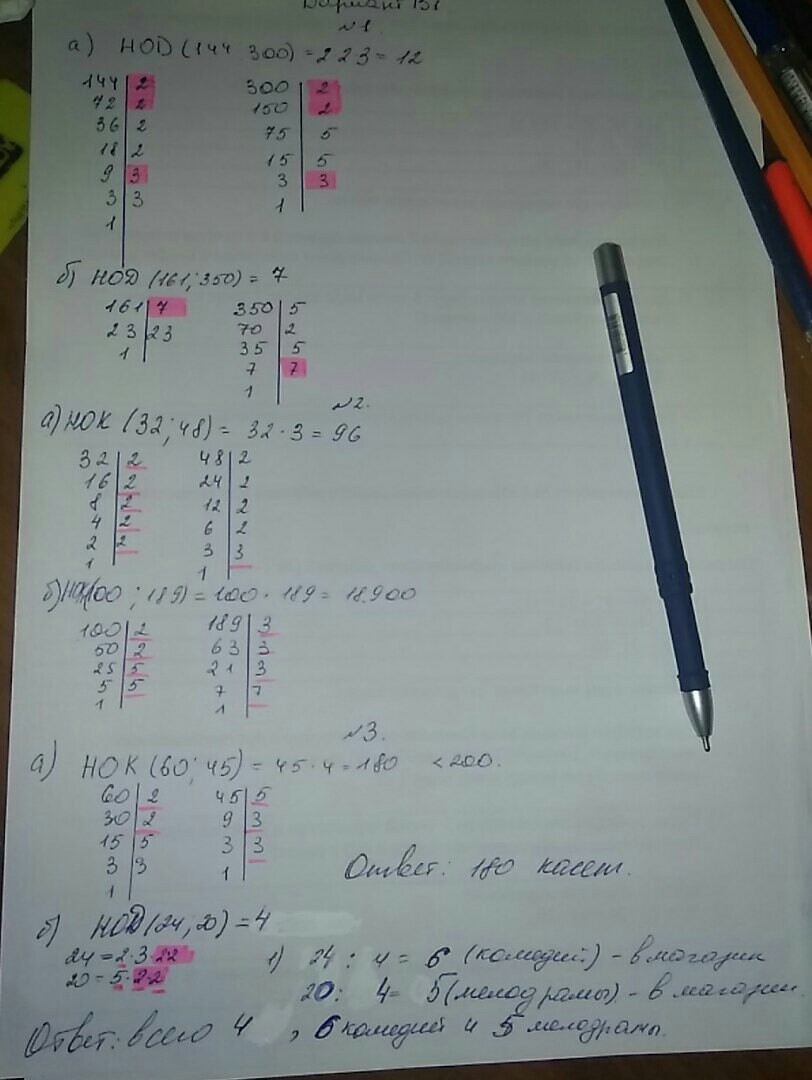 Вариант
№1
а) НОD (144 300) = 2 2 3 = 12
144 | 2   300 | 2
72 | 2   150 | 2
36 | 2   75 | 5
18 | 2   15 | 5
9 | 3   3 | 3
3 | 3   1
1
б) НОD (161; 350) = 7
161 | 7   350 | 5
23 | 23   70 | 2
1   35 | 5
7 | 7
1
№2.
а) НОК (32; 48) = 32 · 3 = 96
32 | 2   48 | 2
16 | 2   24 | 2
8 | 2   12 | 2
4 | 2   6 | 2
2 | 2   3 | 3
1   1
б) НОК(100 ; 189) = 100 · 189 = 18.900
100 | 2   189 | 3
50 | 2   63 | 3
25 | 5   21 | 3
5 | 5   7 | 7
1   1
№3.
а) НОК (60; 45) = 45 · 4 = 180 < 200.
60 | 2   45 | 5
30 | 2   9 | 3
15 | 5   3 | 3
3 | 3   1
1
Ответ: 180 кассет.
б) НОD (24, 20) = 4
24 = 2·3·2 2   1) 24 : 4 = 6 (комедий) - в магазин
20 = 5·2·2   20 : 4 = 5 (мелодрамы) - в магазин.
Ответ: всего 4 , 6 комедий и 5 мелодрамы.